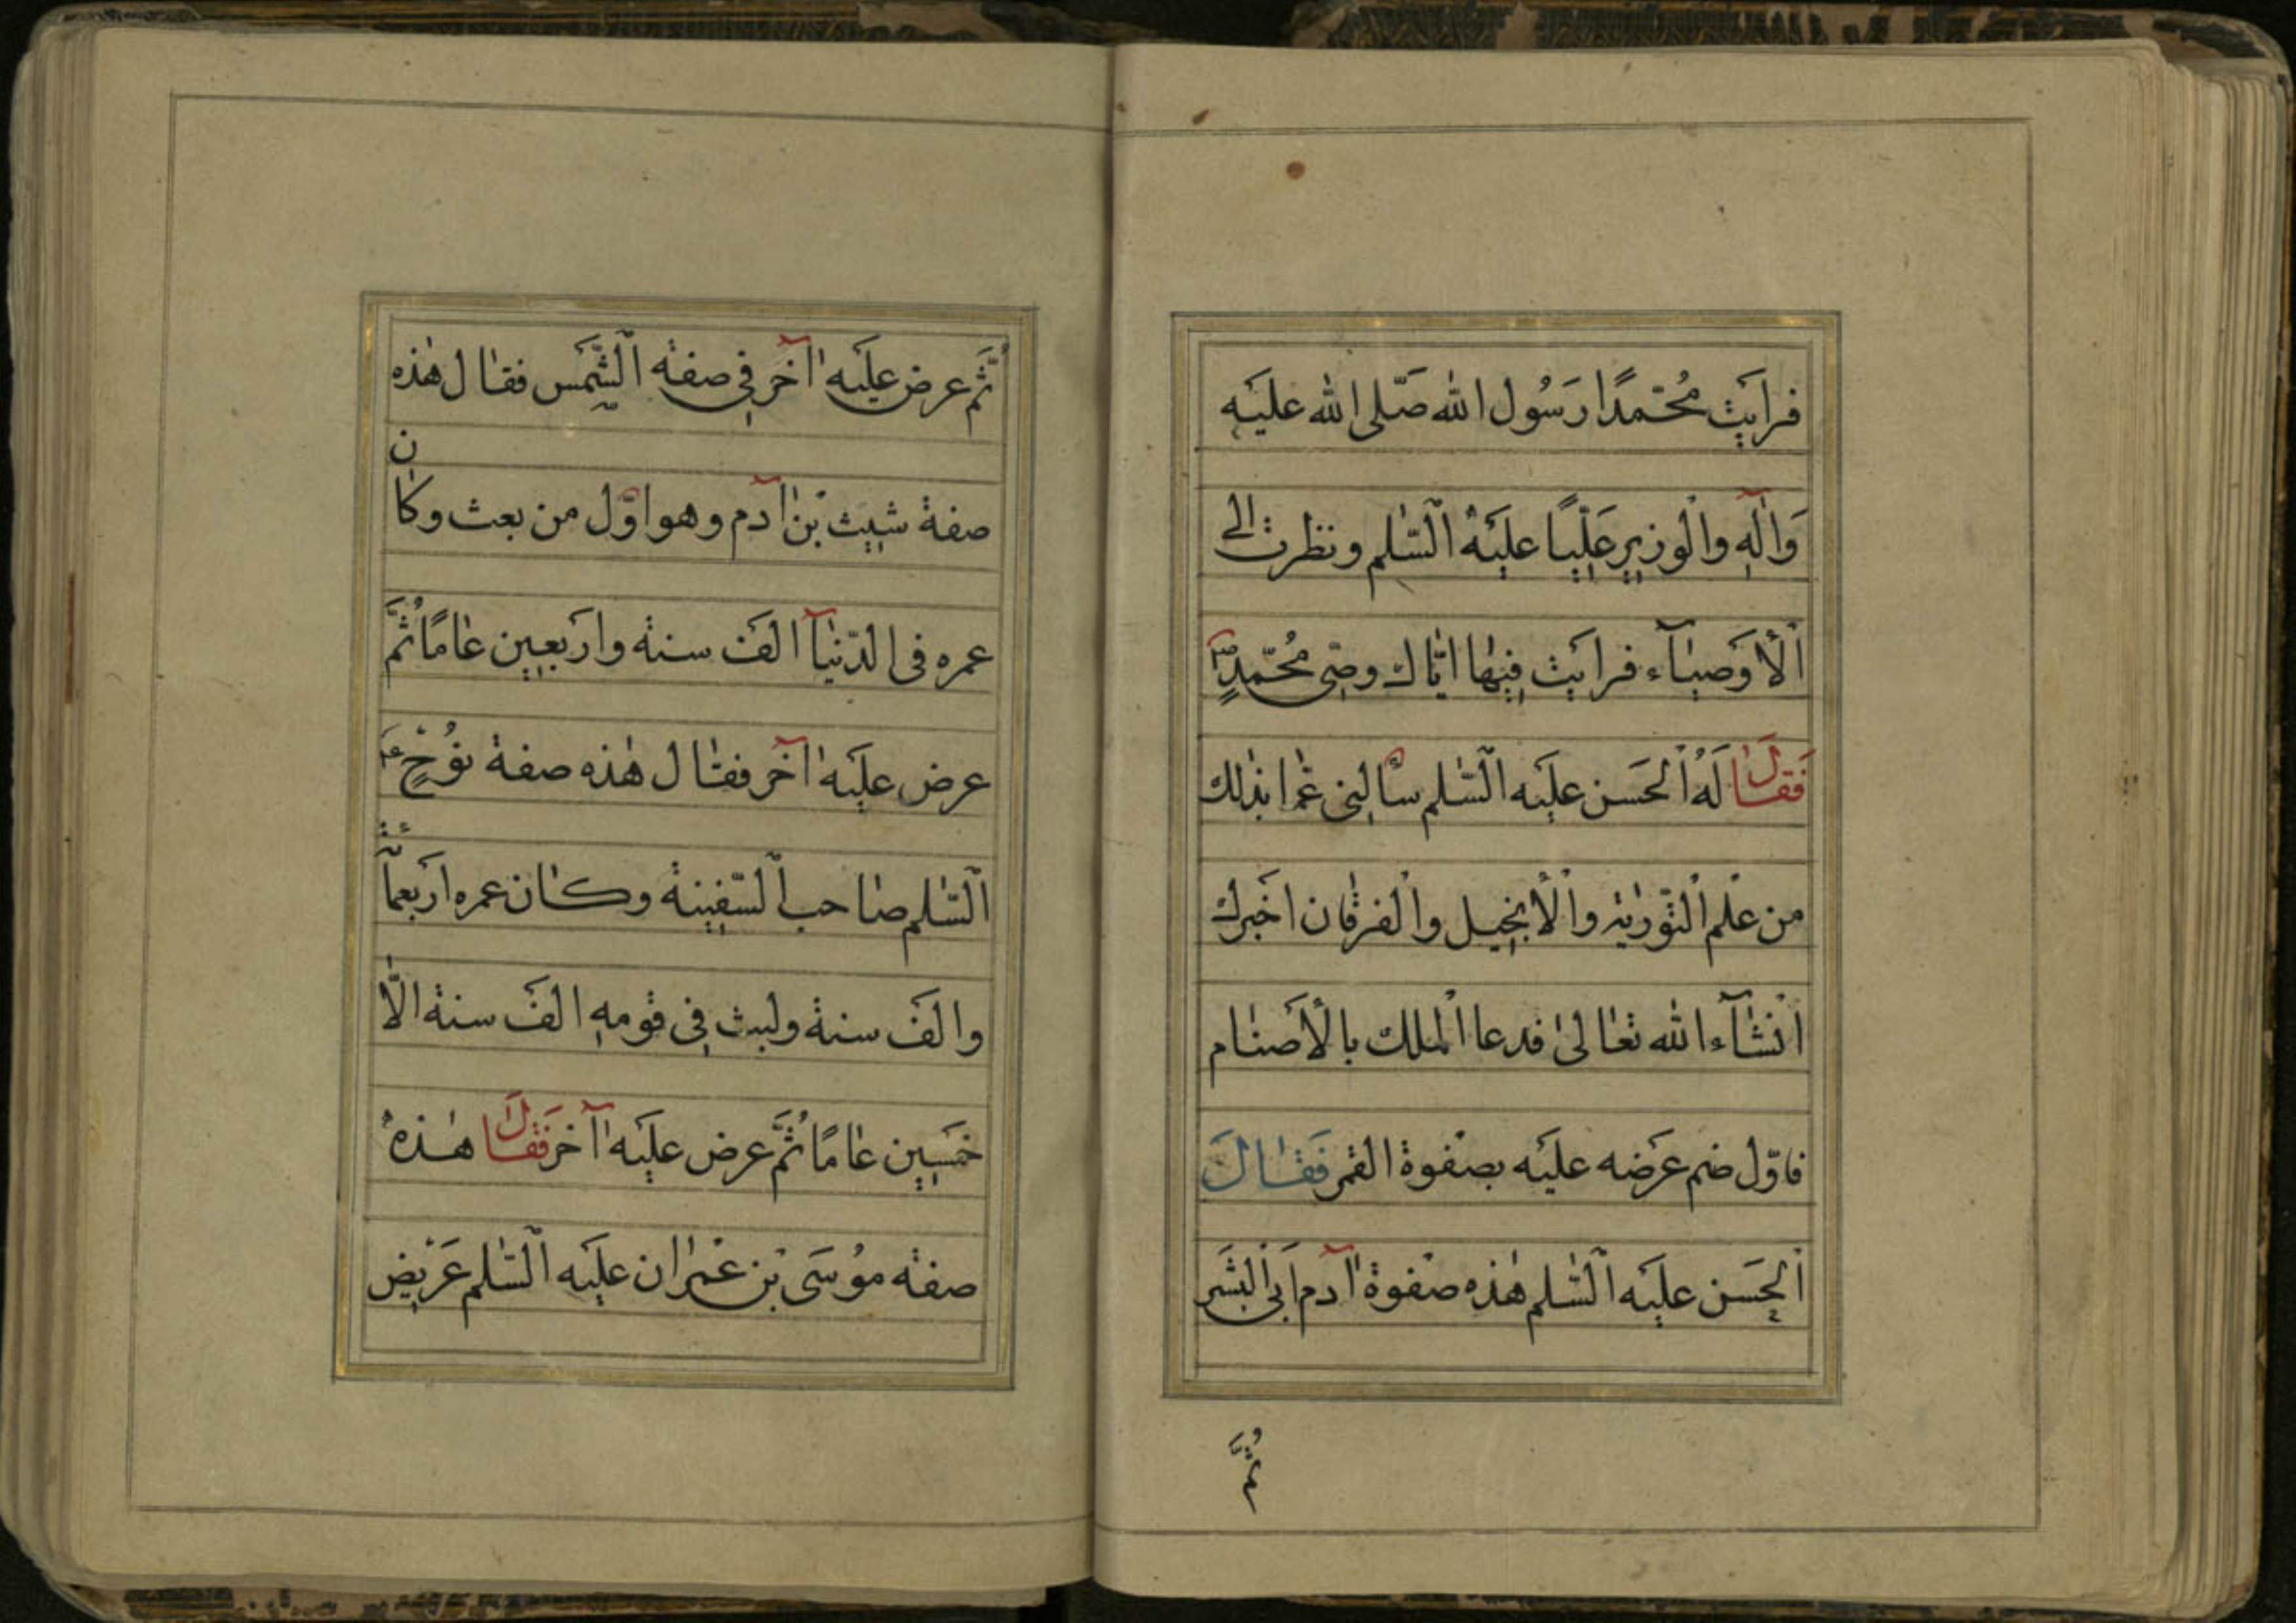 فرايت محمّدًا رَسُول الله صَلّى الله عليَه
وَاٰلهِ والْوزير عَليًّا عليَهْ الَسّٰلم ونظرت الى
اْلأوَصيٰآء فرايَت فيهٰا ايّاك وصّى مُحمّدٍ
فَقٰالَ لَهُ اْلحَسَن عليَه الَسّٰلم سأَلنى عمّا بذٰلك
من عْلم الْتّورٰية والْأنجيل والْفرقٰان اخَبرك
اْنشٰآء الله تعٰالىٰ فدعا الْملك بالْأصنٰام
فاوّل ضم عرَضه عليَه بصْفوة القمر فَقٰالَ
الْحَسن عليَه الَسّٰلم هٰذه صْفوة اٰدم ابَى الْبشَر
ثُمَّ
ثُمَّ عرض عليَه اٰخر فى صفة الَشّمَس فقٰال هٰذه
صفة شيث بْن اٰدم وهو اوّل من بعث وكٰان
عمره فى الدّنيٰآ الفَ سنة وارَبعين عٰامًا ثُمَّ
عرض عليَه اٰخر فقٰال هٰذه صفة نوُحٍ ع
الَسّٰلم صٰاحب الَسّفينة وكٰان عمره ارَبعمأئة
والفَ سنة ولبث فى قومهِ الفَ سنة الّا
خمَسين عٰامًا ثُمَّ عرض عليَه اٰخر فَقٰالَ هٰذهُ
صفة موُسَى بْن عْمرٰان عليَه الَسّٰلم عَرْيض